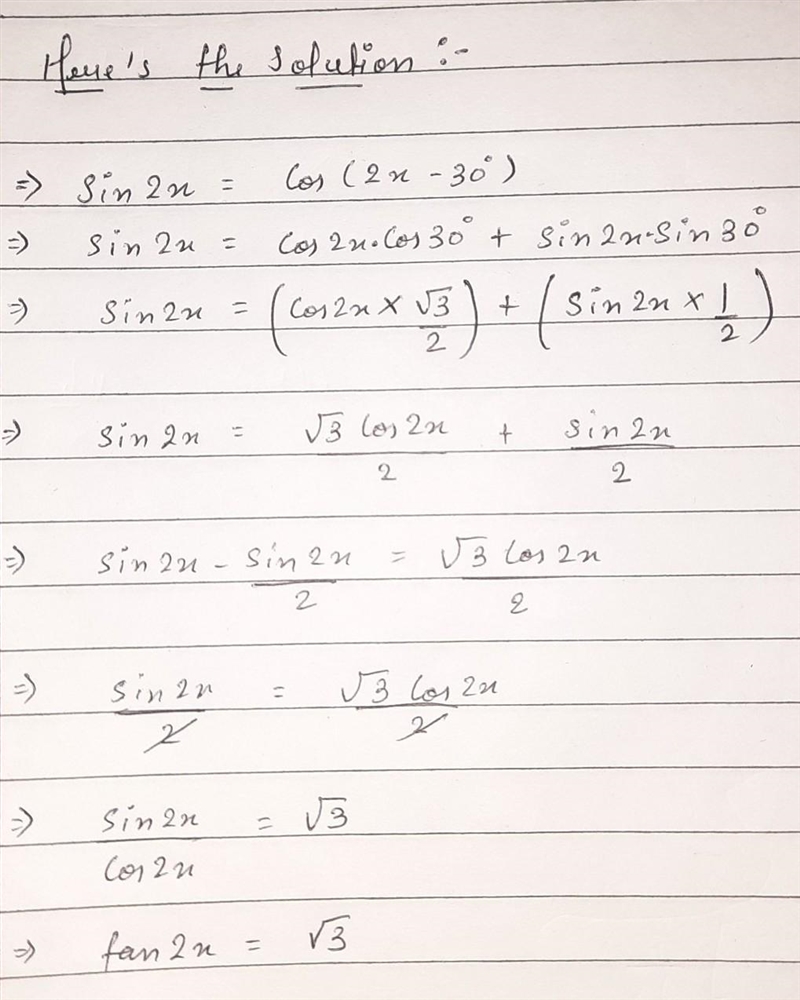 Here's the solution :-
=> sin 2x = cos (2x - 30°)
=> sin 2x = cos 2x . cos 30° + sin 2x . sin 30°
=> sin 2x = (cos 2x × √3/2) + (sin 2x × 1/2)
=> sin 2x = √3 cos 2x/2 + sin 2x/2
=> sin 2x - sin 2x/2 = √3 cos 2x/2
=> sin 2x/2 = √3 cos 2x/2
=> sin 2x/cos 2x = √3
=> tan 2x = √3